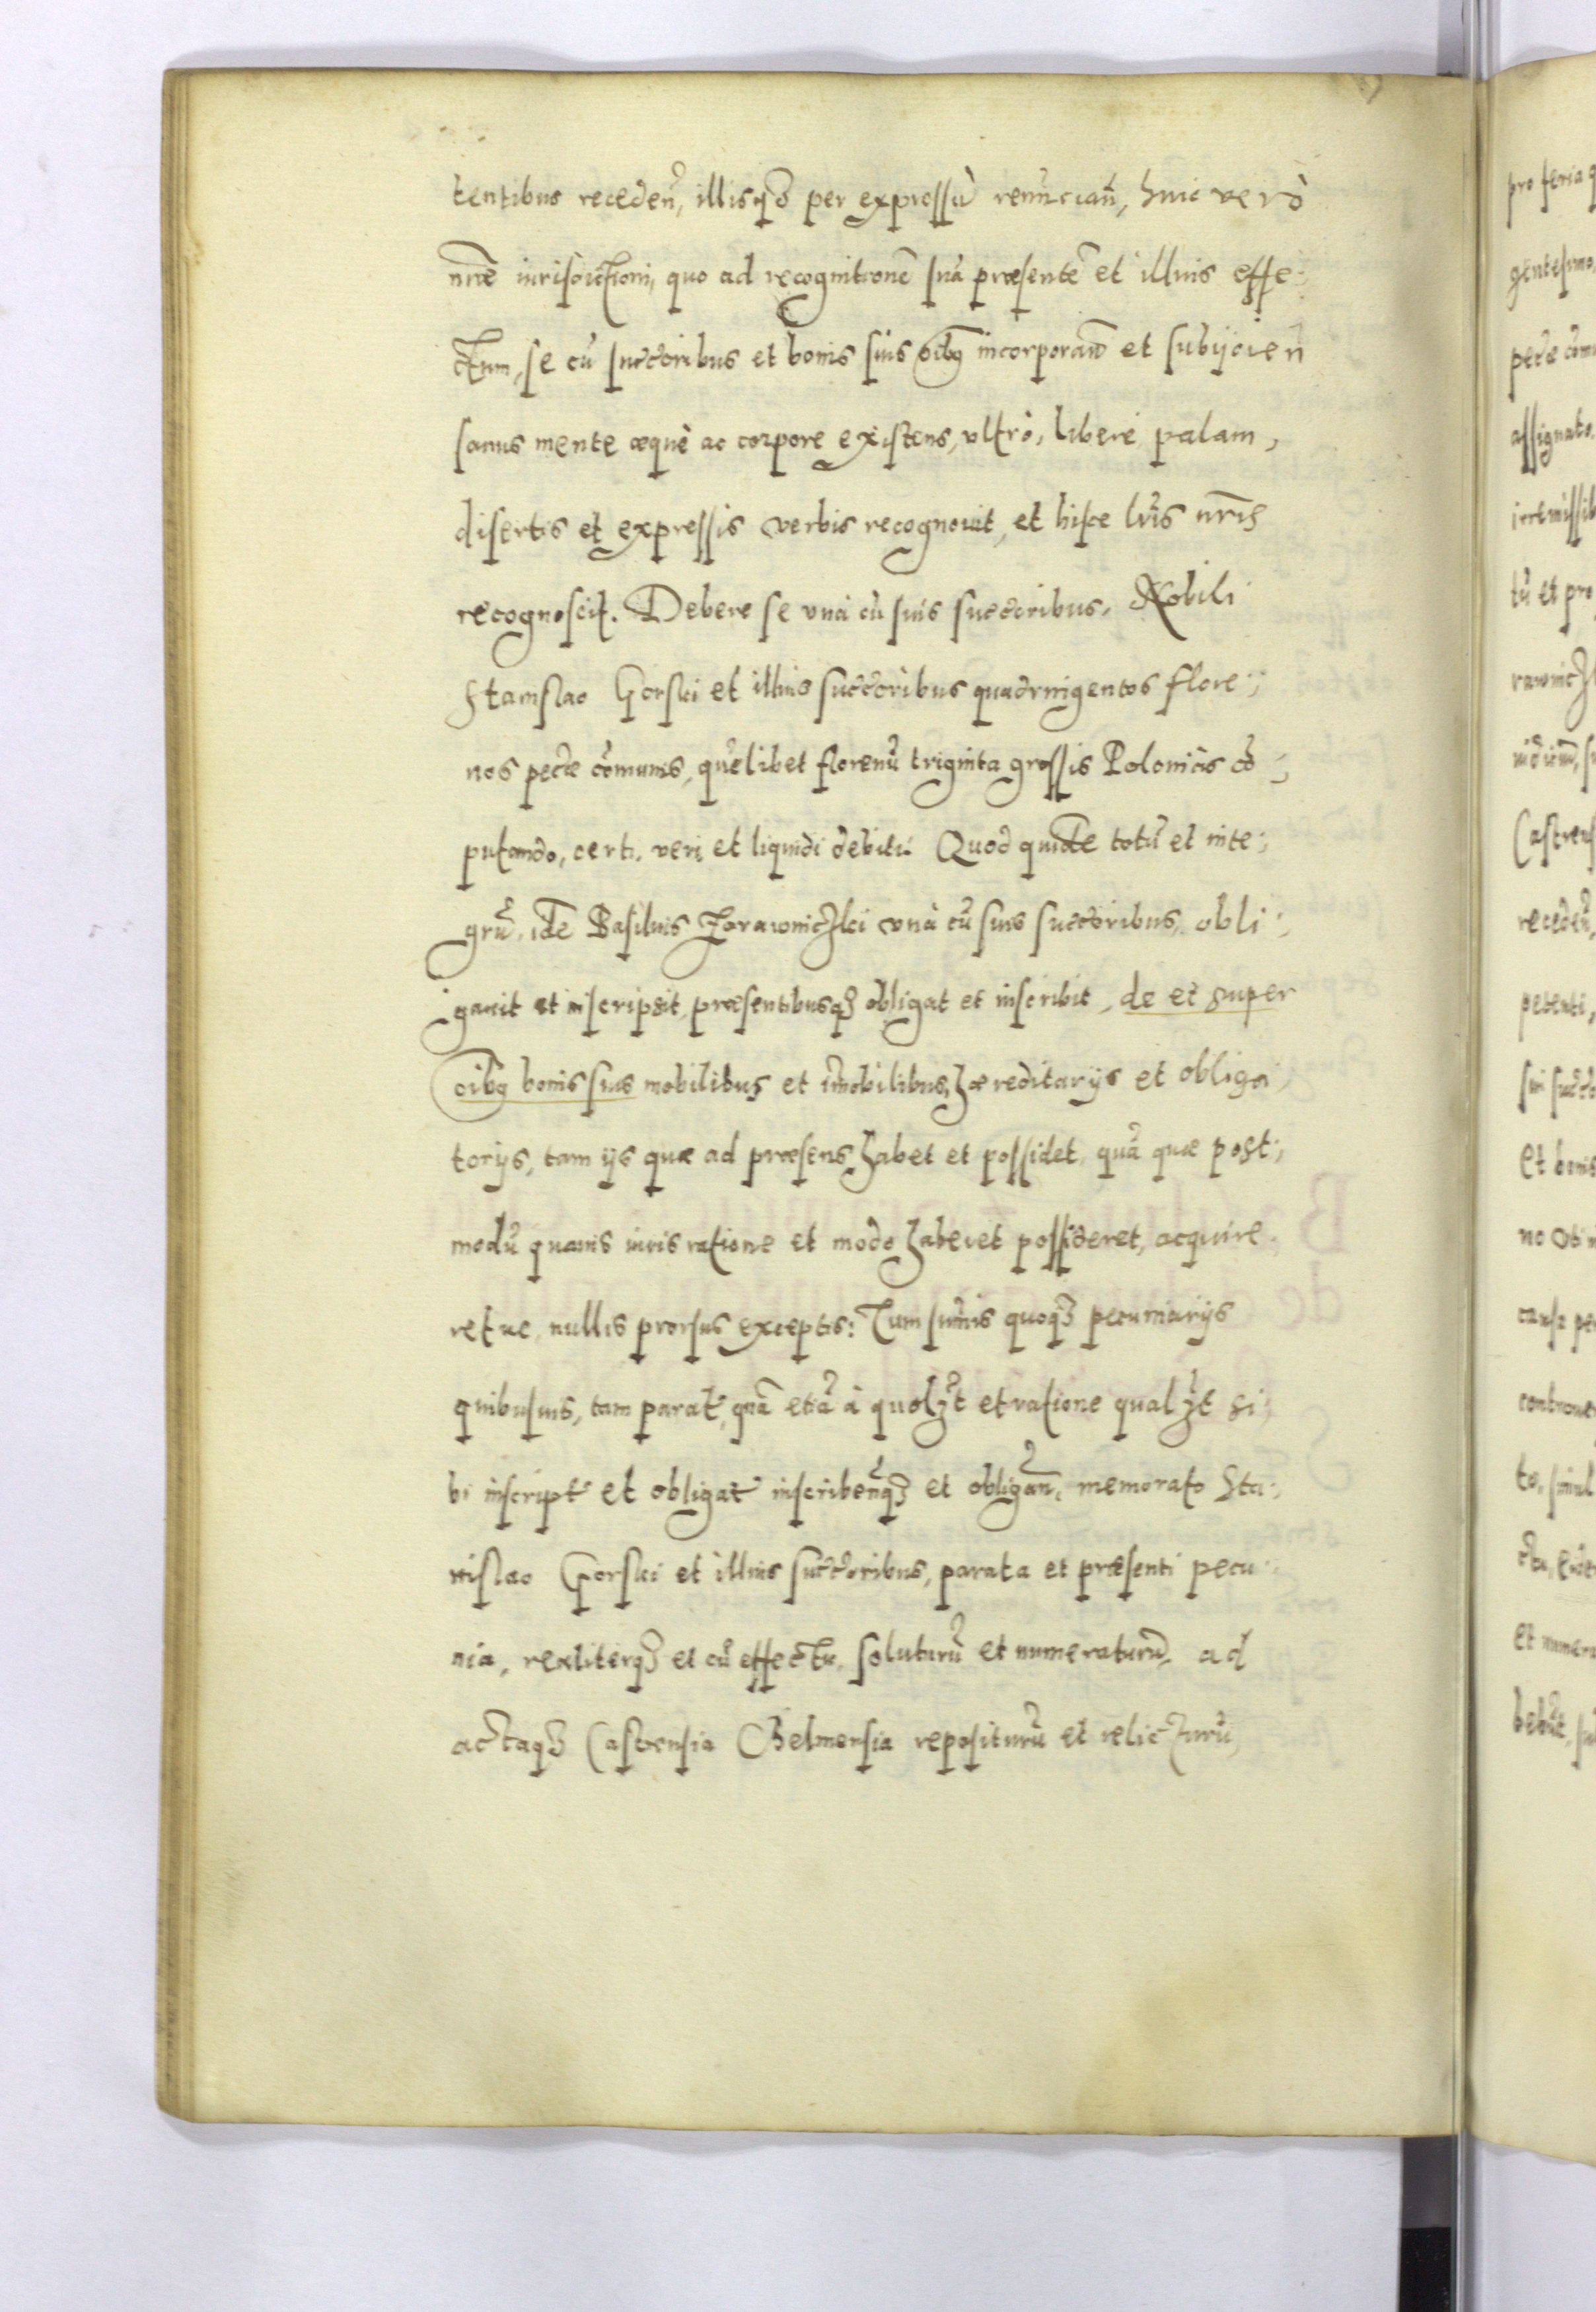 tentibus receden̄, illisq3 per expressū renūncian̄, huic verò
nr̄ae iurisdictioni, quo ad recognitionē suā praesentē et illius effe-
ctum, se cū succ̄oribus et bonis suis oībq incorporan̄ et subijcien̄
sanus mente aequè ac corpore existens, vltrò, liberè palam,
disertis et expressis verbis recognouit, et hisce lr̄is nr̄is
recognoscit. Debere se vnà cū suis succ̄oribus, Nobili
Stanislao Gorski et illius succ̄oribus quadringentos flore-
nos pec̄ae cōmunis, quēlibet florenū triginta grossis Polonicis cō-
putando, certi, veri et liquidi debiti. Quod quidē totū et inte-
grū, idē Basilius Zarawniczki vnà cū suis succ̄oribus, obli-
gauit et inscripsit, praesentibusq3 obligat et inscribit, de et super
oībq bonis suis mobilibus et im̄obilibus, haereditarijs et obliga-
torijs, tam ijs quae ad praesens habet et possidet, quā quae post-
modū quauis iuris ratione et modo haberet possideret, acquire-
retue, nullis prorsus exceptis: Tum sum̄is quoq3 pecuniarijs
quibusuis, tam parat̄, quā etiā à quolz̄t et ratione qualz̄t si-
bi inscript̄ et obligat̄ inscriben̄q3 et obligan̄, memorato Sta-
nislao Gorski et illius succ̄oribus, parata et praesenti pecu-
nia, realiterq3 et cū effectu, soluturū et numeraturū, ad
actaq3 Castrensia Chelmensia repositurū et relicturū,